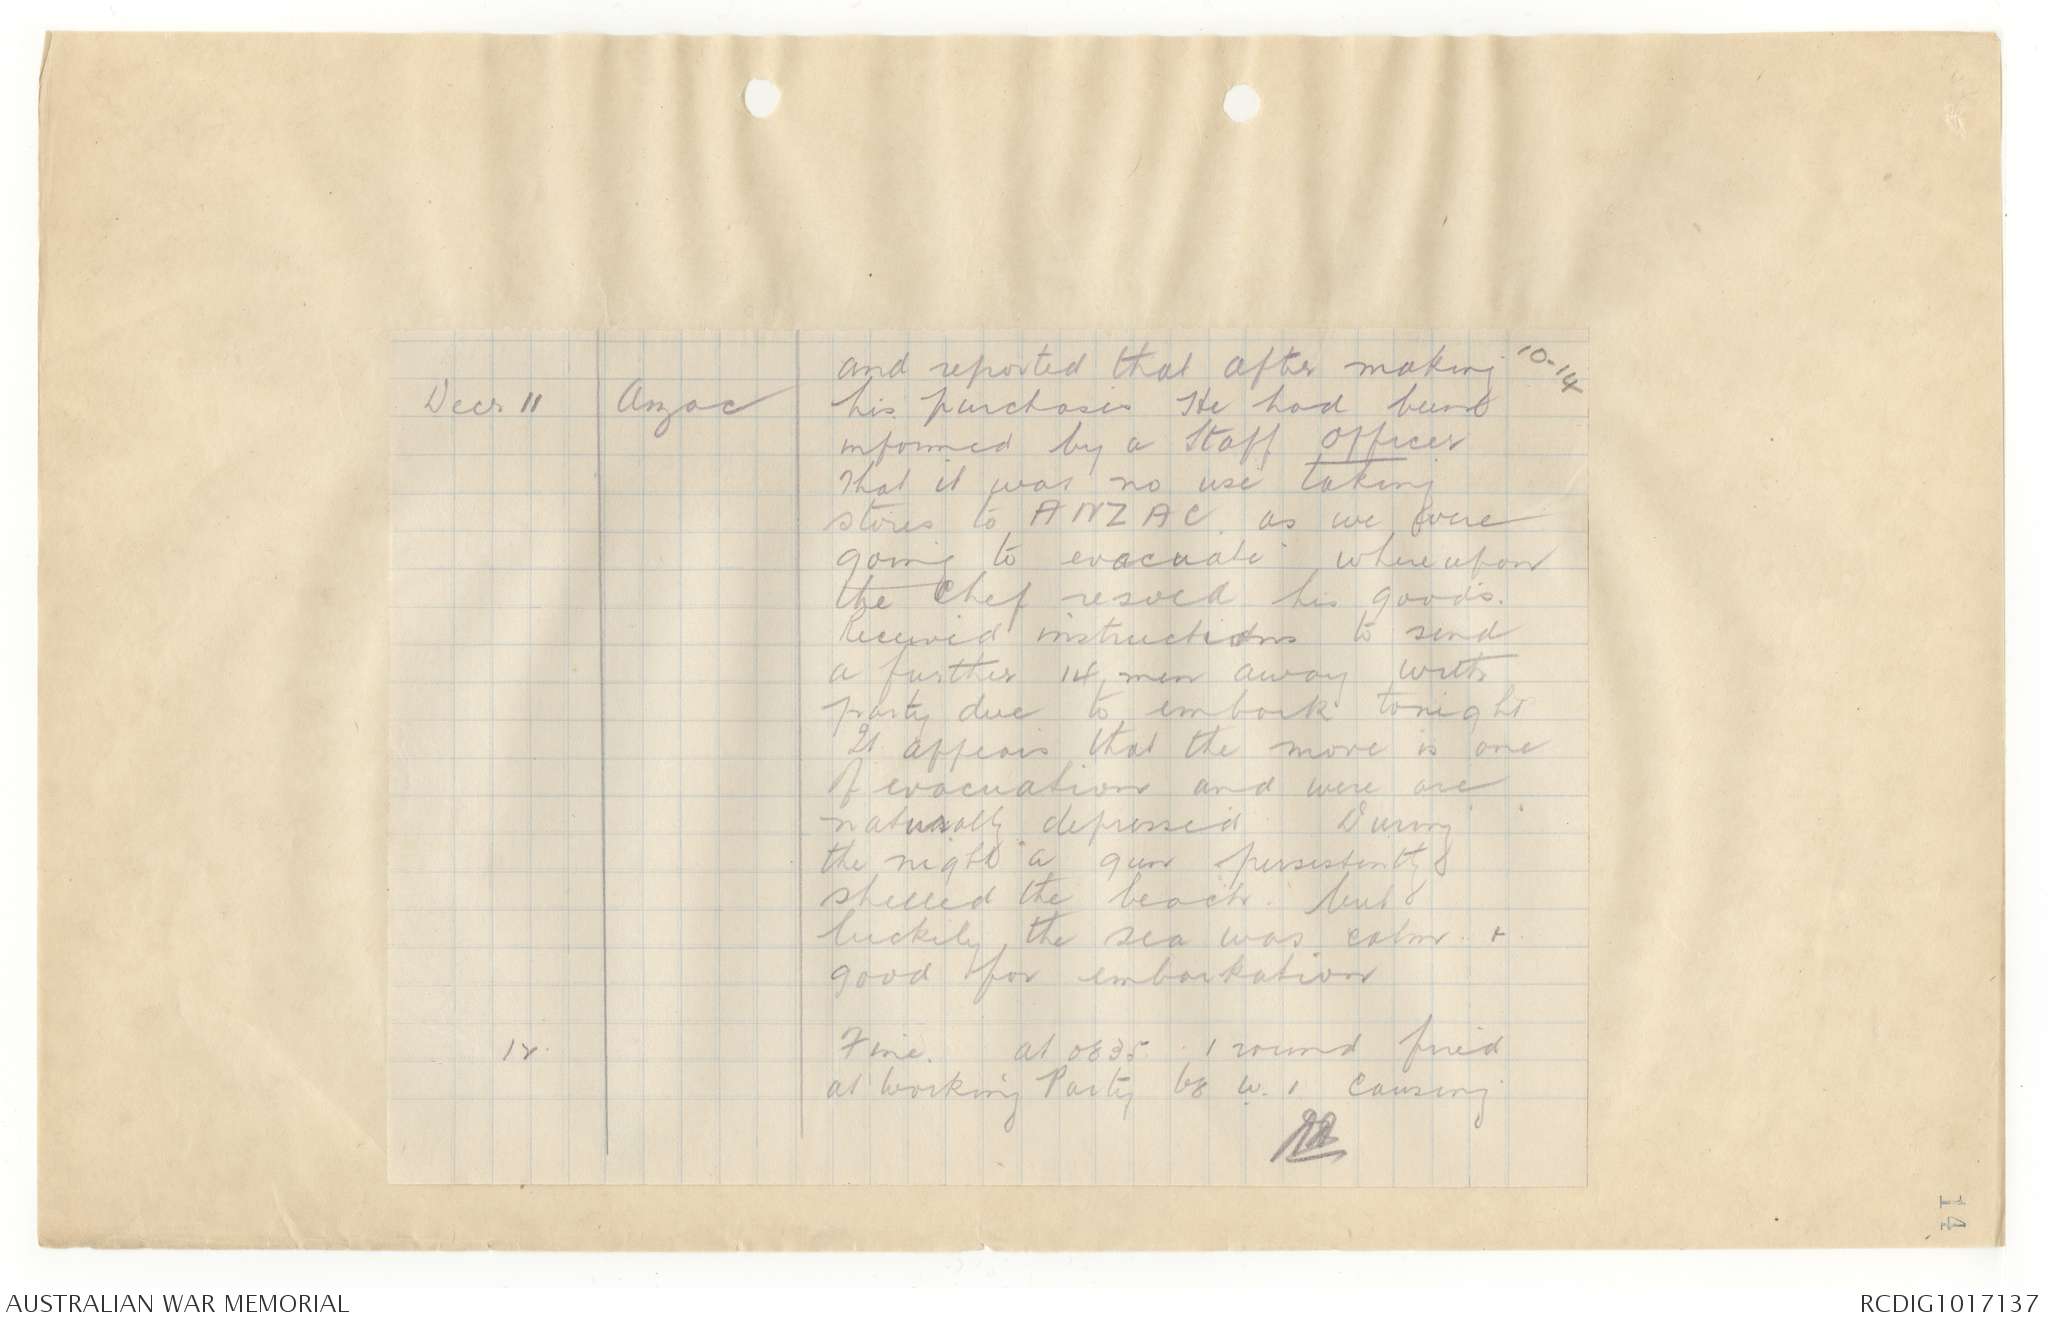 10-14
and reported that after making
Decr 11 Anzac his purchases He had been
informed by a Staff Officer
that it was no use taking
stores to ANZAC as we were
going to evacuate whereupon
the Chef resold his goods.
Received instructions to send
a further 14 men away with
party due to embark tonight
It appears that the move is one
of evacuation and were are
naturally depressed During
the night a gun persistently
shelled the beach. but
luckily the sea was calm +
good for embarkation
12. Fine. at 0835. 1 round fired
at Working Party by W. 1 causing
14
AUSTRALIAN WAR MEMORIAL
RCDIG1017137